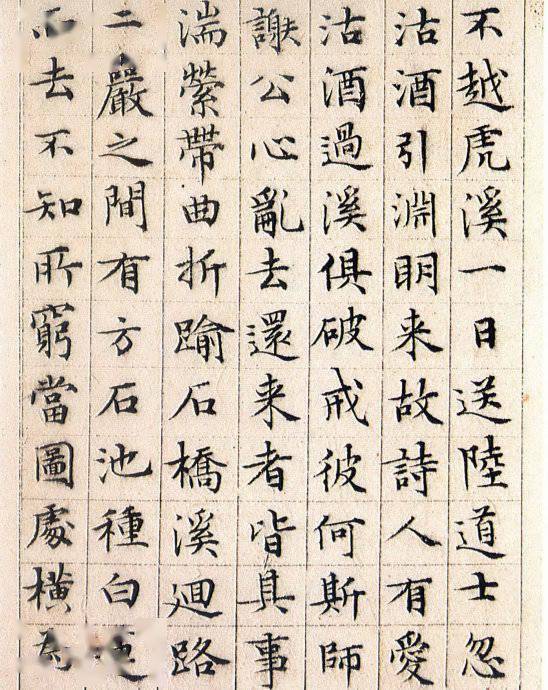 不越虎溪一日送陸道士忽
沽酒引淵明来故詩人有愛
沽酒過溪俱破戒彼何斯師
謝公心亂去還来者皆具事
湍縈帶曲折踰石橋溪廻路
二巖之間有方石池種白
去不知所窮當圖處橫